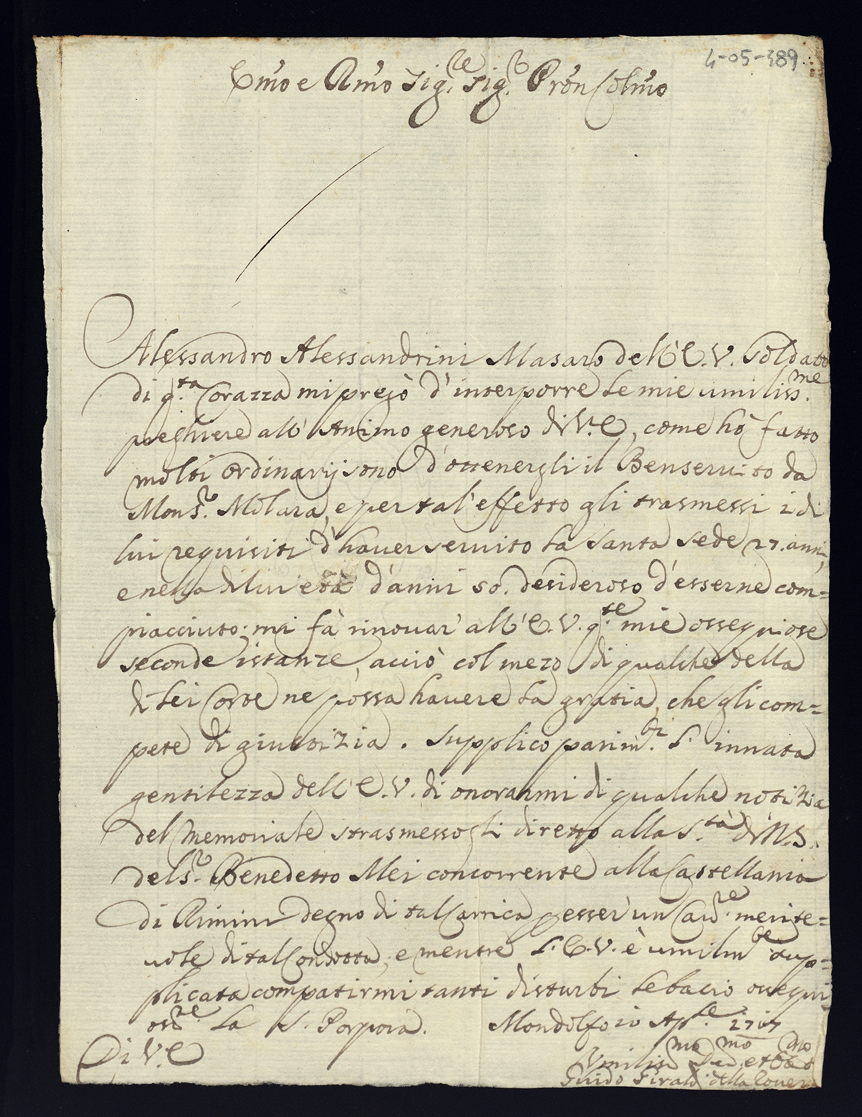 4-05-389
Em̃o e Rm̃o Sig.re Sig.r Prõn Colm̃o
Alessandro Alessandrini Masaro dell'E.V. soldato
di q.ta Corazza mi pregò d'interporre le mie umiliss.me
preghiere all'Animo generoso di V.E, come hò fatto
molti ordinarij sono d'ottenergli il Benservito da
Mons.r Molara, e per tal'effetto gli trasmessi i di
lui requisiti d'haver servito la Santa Sede 27. anni,
e nella di lui età d'anni 50. desideroso d'esserne com=
piacciuto, mi fà rinovar' all'E.V. q.te mie ossequiose
seconde istanze, acciò col mezo di qualche della
di Lei Corte ne possa havere la gratia, che gli com=
pete di giustizia. Supplico parim.te l'innata
gentilezza dell'E.V. di onorarmi di qualche notizia
del memoriale trasmessogli diretto alla S.tà di N.S.
del S.r Benedetto Mei concorrente alla Castellania
di Rimini degno di tal Carrica p esser' un Cav.re merite=
vole di tal Condotta, e mentre l'E.V. è umilm.te sup=
plicata compatirmi tanti disturbi le bacio ossequi
os.te la S. Porpora. Mondolfo 10 Ap.le 1717
Di V.E
Umiliss.mo Dev.mo et Obb.mo
Guido Girald della Rovere